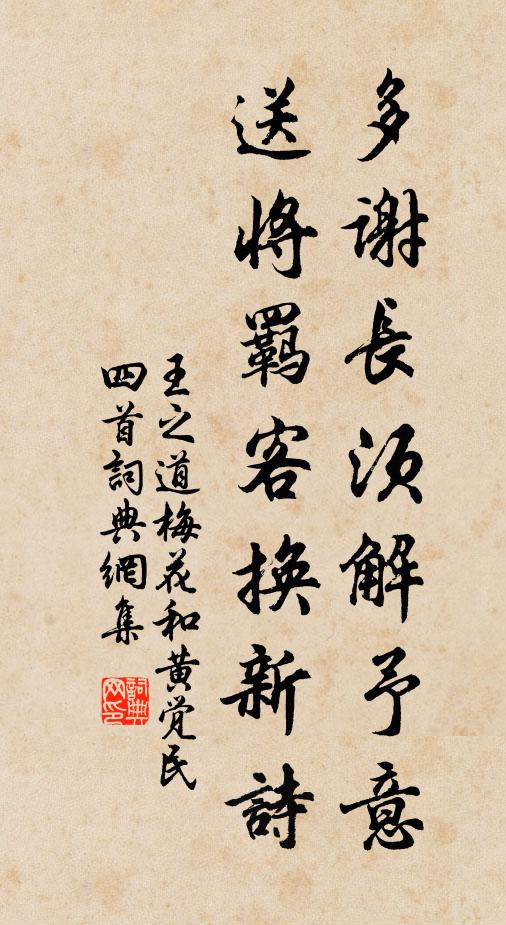 多謝長須解予意
送將羈客換新詩
王之道梅花和黄觉民
四首詞典網集
詞典
网印